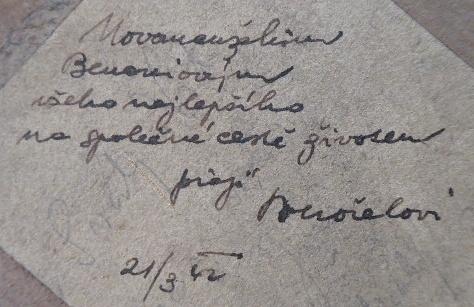 Novomanželům
Benoniovým
všeho nejlepšího
na společné cestě životem
přejí
21/3 42